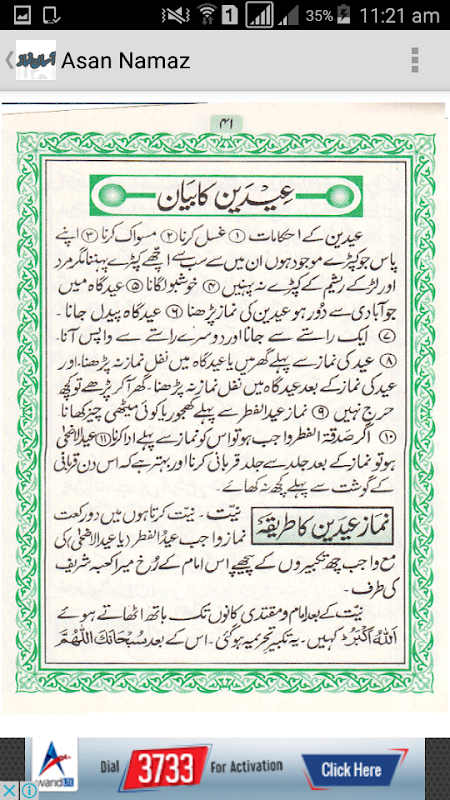 35% 11:21 am
1
آسان نماز Asan Namaz
۴۱
عِیدَین کا بیَان
عیدین کے احکامات ① غسل کرنا ② مسواک کرنا ③ اپنے
پاس جو کپڑے موجود ہوں ان میں سے سب سے اچھے کپڑے پہننا مگر مرد
اور لڑکے ریشم کے کپڑے نہ پہنیں ④ خوشبو لگانا ⑤ عیدگاہ میں
جو آبادی سے دُور ہو عیدین کی نماز پڑھنا ⑥ عیدگاہ پیدل جانا۔
⑦ ایک راستے سے جانا اور دوسرے راستے سے واپس آنا۔
⑧ عید کی نماز سے پہلے گھر میں یا عیدگاہ میں نفل نماز نہ پڑھنا۔ اور
عید کی نماز کے بعد عیدگاہ میں نفل نماز نہ پڑھنا۔ گھر آ کر پڑھے تو کچھ
حرج نہیں ⑨ نماز عیدالفطر سے پہلے کھجور یا کوئی میٹھی چیز کھانا۔
⑩ اگر صدقۃ الفطر واجب ہو تو اس کو نماز سے پہلے ادا کرنا ⑪ عیدالاضحٰی
ہو تو نماز کے بعد جلد سے جلد قربانی کرنا اور بہتر ہے کہ اس دن قربانی
کے گوشت سے پہلے کچھ نہ کھائے۔
نماز عیدین کا طریقہ
نیّت۔ نیّت کرتا ہوں میں دو رکعت
نماز واجب عیدُ الفطر (یا عیدالاضحٰی) کی
مع واجب چھ تکبیروں کے پیچھے اس امام کے رُخ میرا کعبہ شریف
کی طرف۔
نیّت کے بعد امام و مقتدی کانوں تک ہاتھ اٹھاتے ہوئے
اَللّٰہُ اَکْبَرُ کہیں۔ یہ تکبیر تحریمہ ہو گئی۔ اس کے بعد سُبْحَانَكَ اللّٰهُمَّ
warid LTE Dial 3733 For Activation Click Here